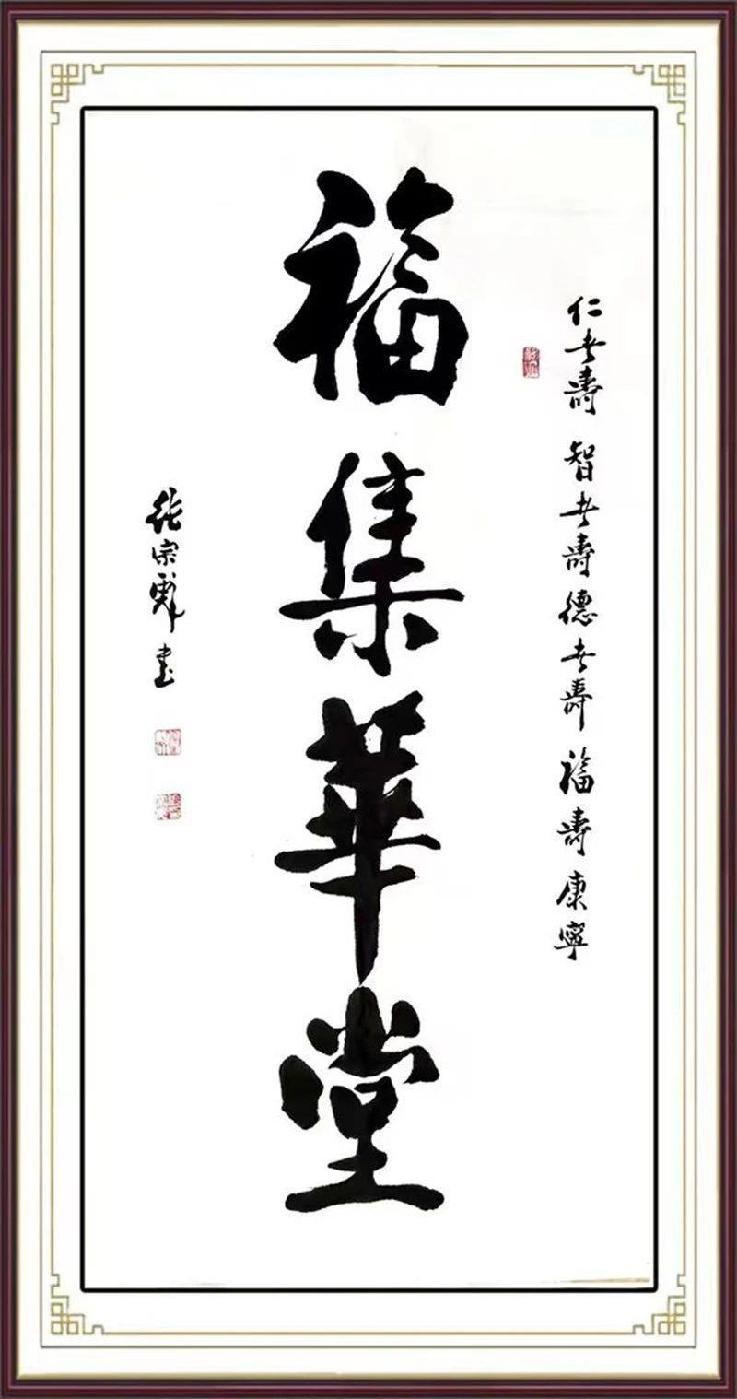 仁者壽 智者壽 德者壽 福壽康寧
福集華堂
張宗 書